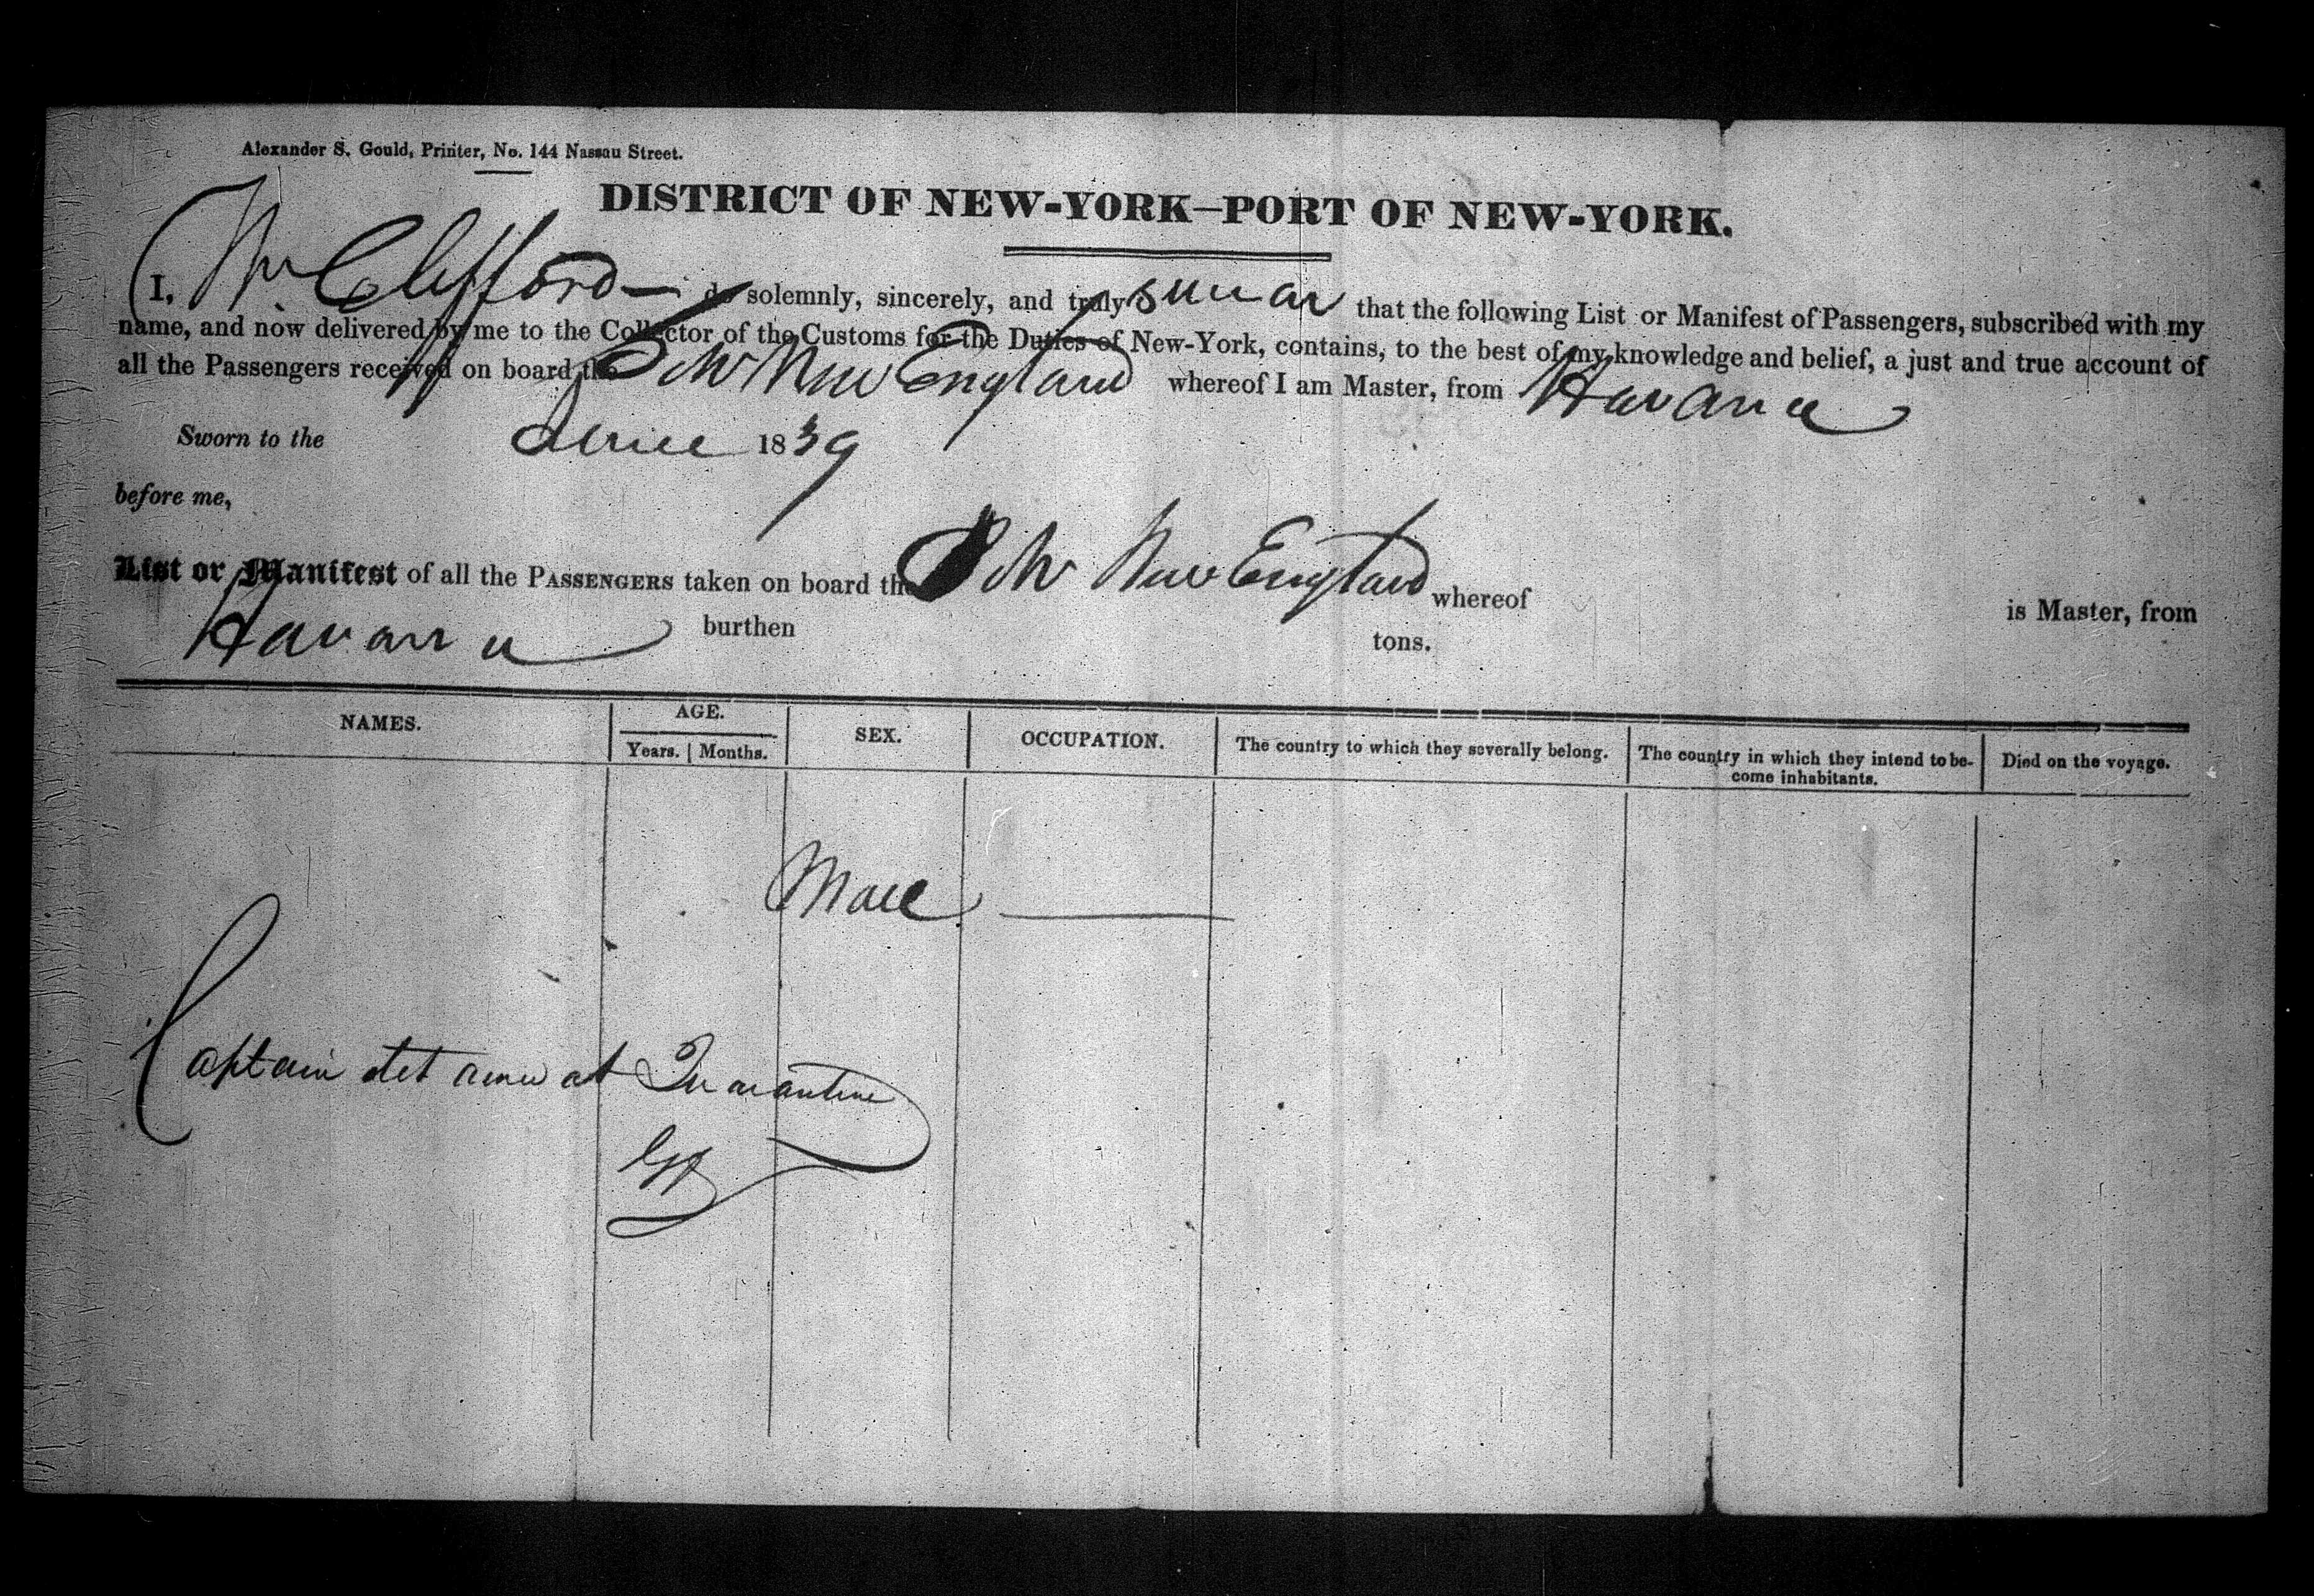 Alexander S. Gould, Printer, No. 144 Nassau Street.
DISTRICT OF NEW-YORK—PORT OF NEW-YORK.
I, Wm Clifford do solemnly, sincerely, and truly swear that the following List or Manifest of Passengers, subscribed with my
name, and now delivered by me to the Collector of the Customs for the Duties of New-York, contains, to the best of my knowledge and belief, a just and true account of
all the Passengers received on board the Schr New England whereof I am Master, from Havana
Sworn to the 1839
before me,
List or Manifest of all the PASSENGERS taken on board the Schr New England whereof is Master, from
Havana burthen tons.
NAMES. AGE. SEX. OCCUPATION. The country to which they severally belong. The country in which they intend to be-
come inhabitants. Died on the voyage.
Years. Months.
Male
Captain at Quarantine